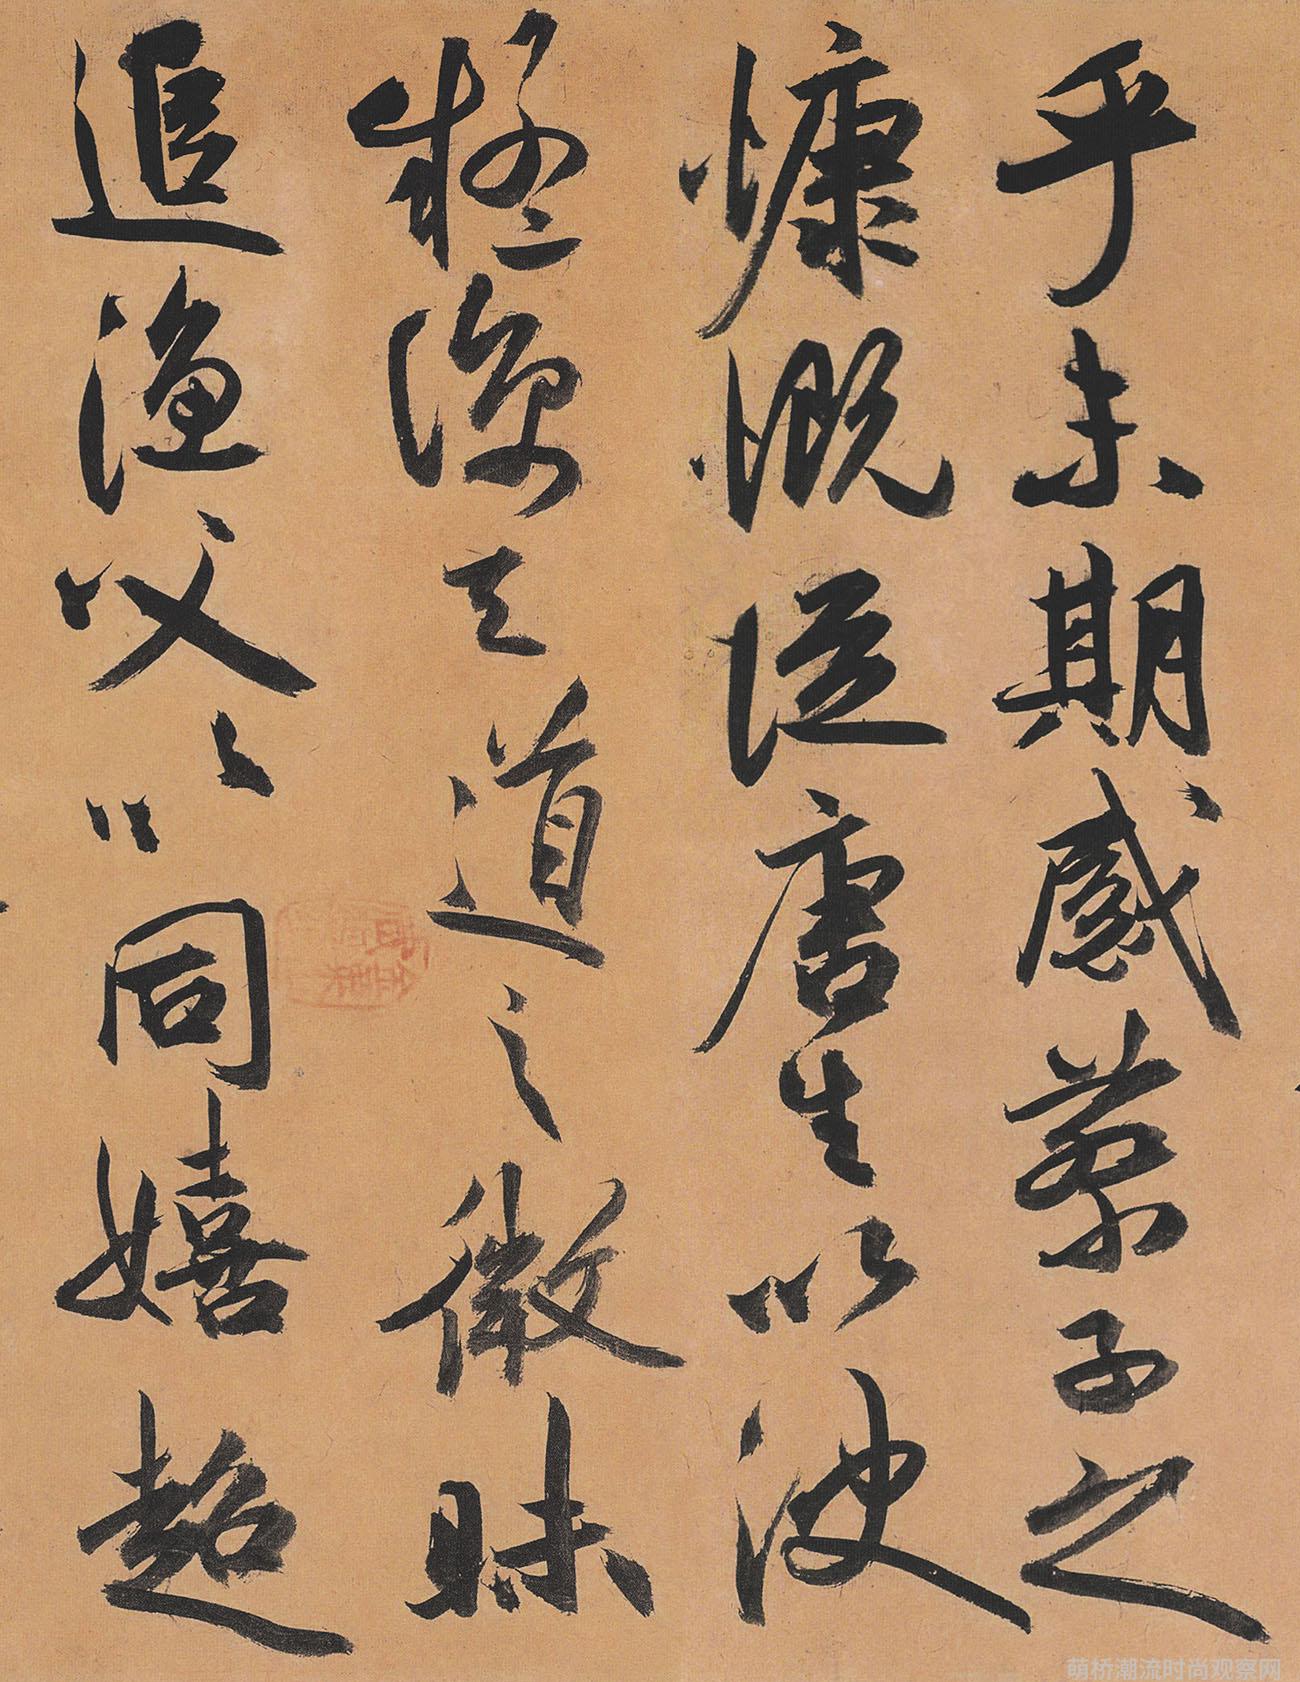 乎未期感蔡子之
慷慨從唐生以決
疑諒天道之微昧
追漁父以同嬉超
萌桥潮流时尚观察网